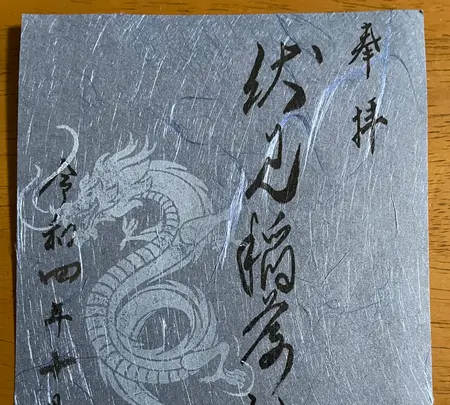 奉拝
伏見稲荷
令和四年十月